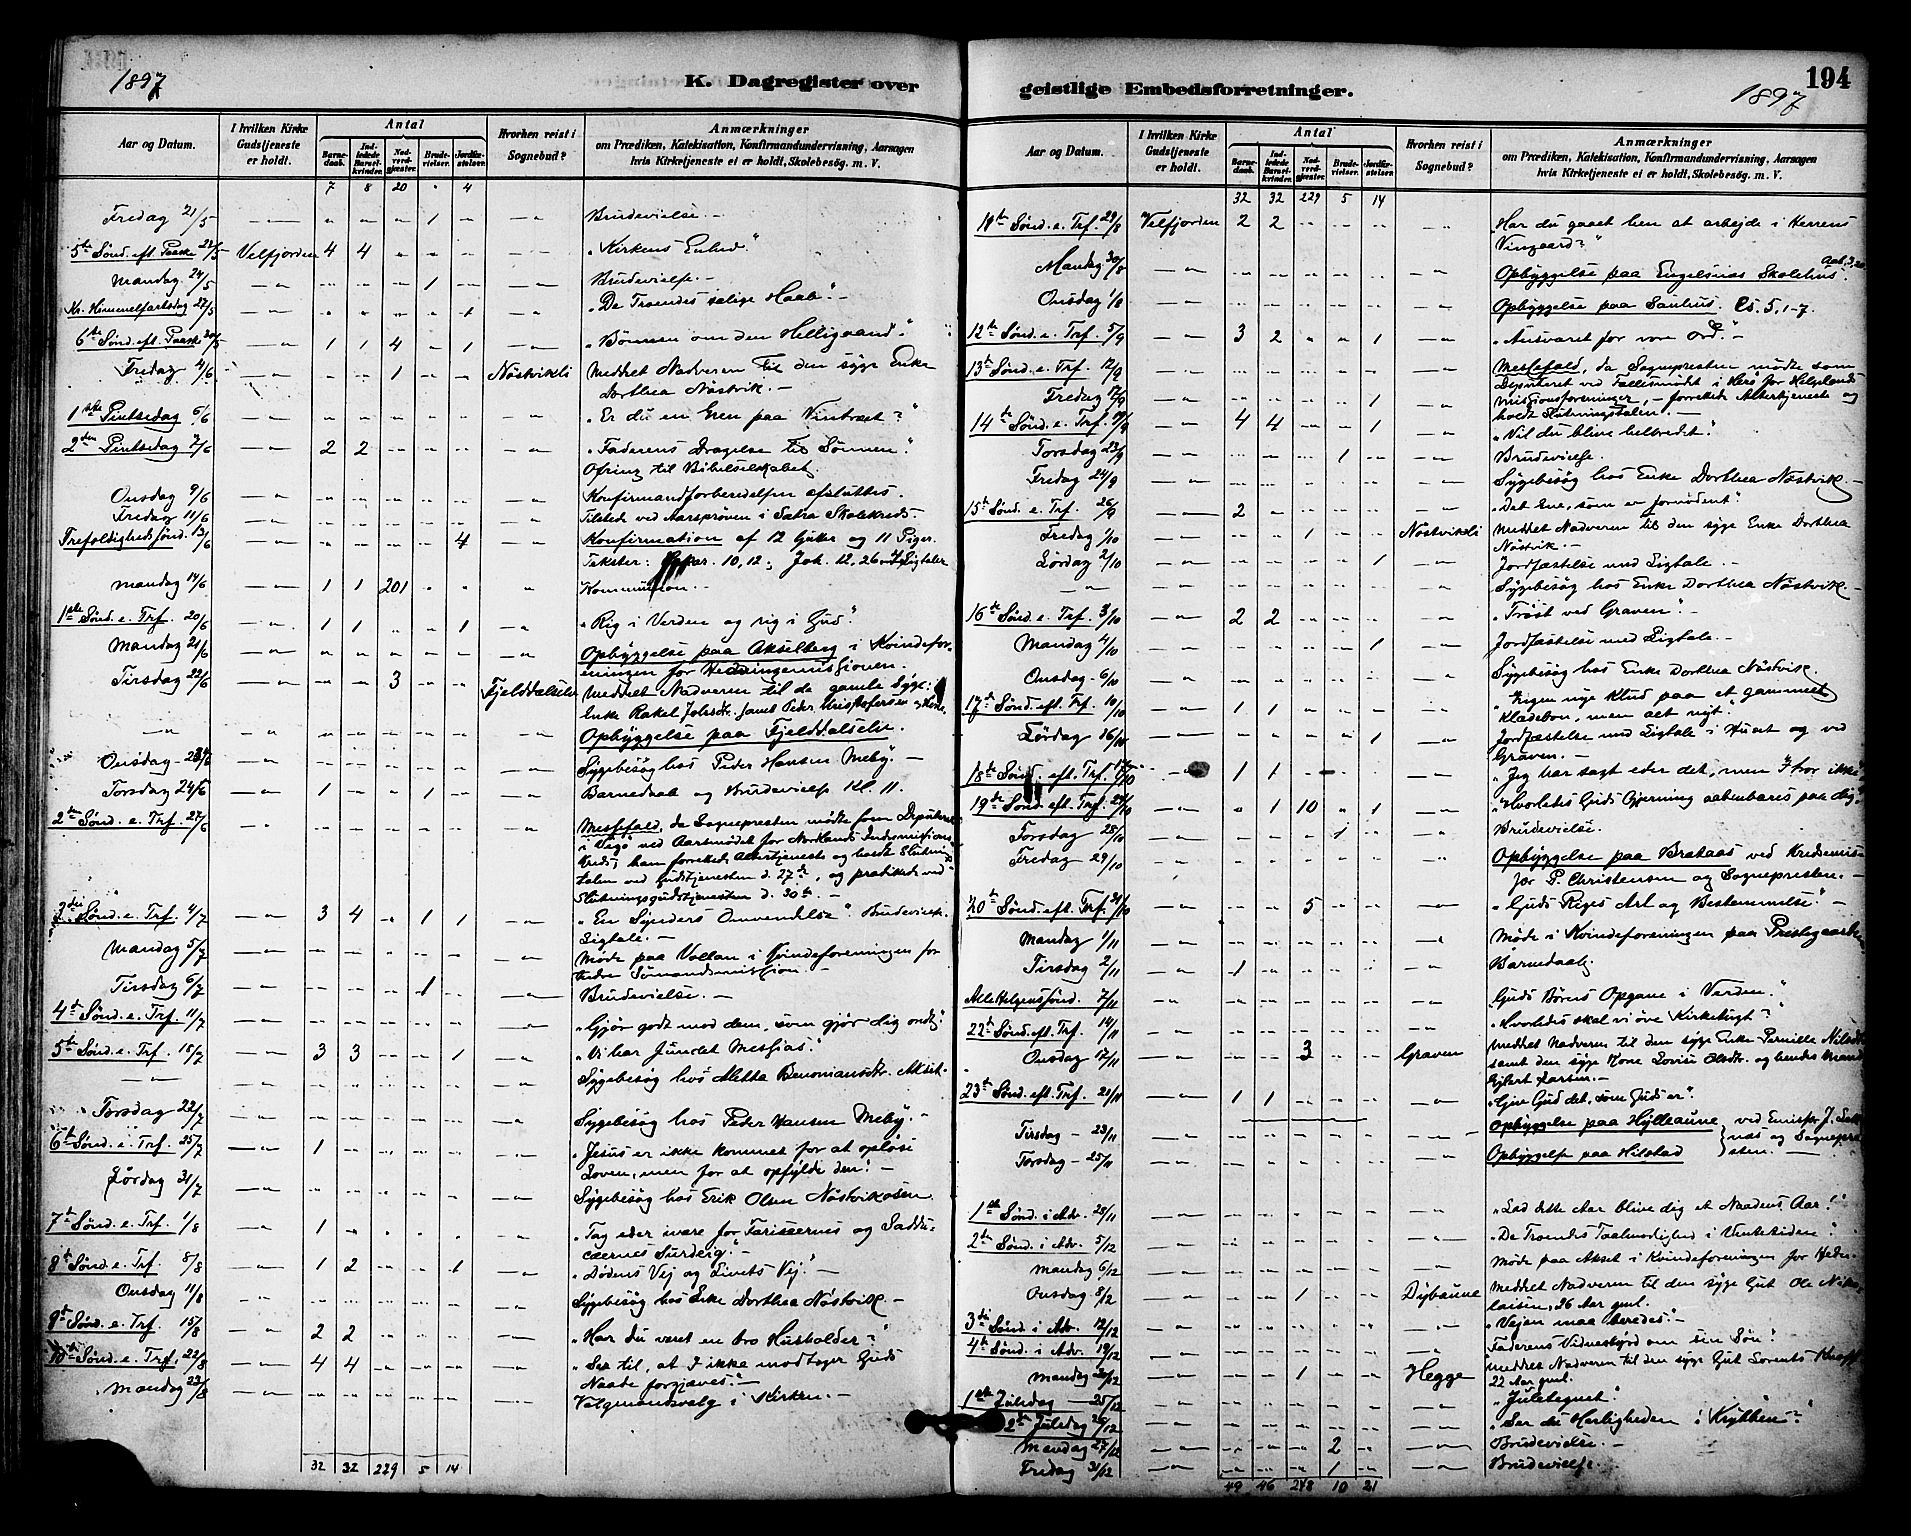 1897
K. Dagregister over
Aar og Datum.
I hvilken Kirke Gudstjeneste er holdt.
Antal
Barnedaab.
Indledede Barselkvinder.
Nadverdgjæster.
Brudevielser.
Jordfæstelser.
Hvorhen reist i Sognebud?
Anmærkninger
om Prædiken, Katekisation, Konfirmandundervisning, Aarsagen
hvis Kirketjeneste ei er holdt, Skolebesög m. V.
7 8 20 " 4
Fredag 21/5 — " — " " " 1 " — " — Brudevielse. —
5te Sønd. eft. Paaske 23/5 Velfjorden 4 4 " " " — " — „Kirkens Enhed."
Mandag 24/5 — " — " " " 1 " — " — Brudevielse. —
Kr. Himmelfartsdag 27/5 — " — " " " " 1 — " — „De Troendes salige Haab." —
6te Sønd. eft. Paaske 30/5 — " — 1 1 4 " 1 — " — „Bønnen om den Helligaand."
Fredag 4/6 — " — " " 1 " " Nöstvikli Meddelt Nadveren til den syge Enke
Dorthea Nöstvik. —
1ste Pintsedag 6/6 — " — " " " " " — " — „Er du en Gren paa Vintræet?"
2den Pintsedag 7/6 — " — 2 2 " " " — " — „Faderens Dragelse til Sønnen."
Ofring til Bibelselskabet.
Onsdag 9/6 — " — " " " " " — " — Konfirmandforberedelsen afsluttes.
Fredag 11/6 — " — " " " " " — " — Tilstede ved Aarsprøven i Sætra Skolekreds. —
Trefoldighedssönd. 13/6 — " — " " " " 4 — " — Konfirmation af 12 Gutter og 11 Piger.
Tekster: 10,12; Joh. 12,26 Ligtaler
Mandag 14/6 — " — 1 1 201 " " — " — Kommunion. —
1ste Sønd. e. Trf. 20/6 — " — 1 1 " " 1 — " — „Rig i Verden og rig i Gud."
Mandag 21/6 — " — " " " " " — " — Opbyggelse paa Akselberg i Kvindefor-
eningen for Hedningemissionen.
Tirsdag 22/6 — " — " " 3 " " Fjelddalselv Meddelt Nadveren til de gamle Syge:
Enke Rakel samt Peder Kristofersen og Kone.
— " — — " — " " " " " — " — Opbyggelse paa Fjelddalselv.
Onsdag 23/6 — " — " " " " " — " — Sygebesøg hos Peder Hansen Meby. —
Torsdag 24/6 — " — 1 " " 1 " — " — Barnedaab og Brudevielse Kl. 11.
2den Sønd. e. Trf. 27/6 — " — " " " " " — " — Messefald, da Sognepresten mödte som Deputeret
i Vega ved Aarsmödet for Nordlands Indremissions
Kreds, han forrettede Altertjeneste og holdt Slutnings-
talen ved Gudstjenesten d. 27de, og prædikede ved
Slutningsgudstjenesten d. 30te. —
3die Sønd. e. Trf. 4/7 — " — 3 4 " 1 1 — " — „En Synders Omvendelse". Brudevielse.
Ligtale. —
Mandag 5/7 — " — " " " " " — " — Møde paa Vollan i Kvindeforeningen for
indre Sømandsmission. —
Tirsdag 6/7 — " — " " " 1 " — " — Brudevielse. —
4de Sønd. e. Trf. 11/7 — " — " " " " " — " — „Gjør godt mod dem, som gjør dig ondt."
5te Sønd. e. Trf. 18/7 — " — 3 3 " " 1 — " — „Vi har fundet Messias."
— " — — " — " " " " " — " — Sygebesøg hos Aletta Benoniansdtr.
Torsdag 22/7 — " — " " " " " — " — Sygebesøg hos Peder Hansen Meby. —
6te Sønd. e. Trf. 25/7 — " — 1 " " " " — " — „Jesus er ikke kommet for at opløse
Loven, men for at opfylde den." —
Lørdag 31/7 — " — " " " " " — " — Sygebesøg hos Erik Olsen Nöstvikaasen.
7de Sønd. e. Trf. 1/8 — " — 1 " " " " — " — „Tag eder ivare for Farisæernes og Saddu-
cæernes Surdeig." —
8de Sønd. e. Trf. 8/8 — " — 1 2 " " 1 — " — „Dødens Vej og Livets Vej." —
Onsdag 11/8 — " — " " " " " — " — Sygebesøg hos Enke Dorthea Nöstvik —
9de Sønd. e. Trf. 15/8 — " — 2 2 " " " — " — „Har du været en tro Husholder?" —
10de Sønd. e. Trf. 22/8 — " — 4 4 " " " — " — „Ser til, at I ikke modtager Guds
Naade forgjæves." —
Mandag 23/8 — " — " " " " " — " — Valgmandsvalg i Kirken. —
32 32 229 5 14
geistlige Embedsforretninger.
1897
194
Aar og Datum.
I hvilken Kirke Gudstjeneste er holdt.
Antal
Barnedaab.
Indledede Barselkvinder.
Nadverdgjæster.
Brudevielser.
Jordfæstelser.
Hvorhen reist i Sognebud?
Anmærkninger
om Prædiken, Katekisation, Konfirmandundervisning, Aarsagen
hvis Kirketjeneste ei er holdt, Skolebesög m. V.
32 32 229 5 14
11te Sønd. e. Trf. 29/8 Velfjorden 2 2 " " " " „Har du gaaet hen at arbejde i Herrens
Vingaard?"
Mandag 30/8 — " — " " " " " — " — Opbyggelse paa Engelsnæs Skolehus. Aab. 3,20.
Onsdag 1/9 — " — " " " " " — " — Opbyggelse paa Sauhus. Es. 5,1-7.
12te Sønd. e. Trf. 5/9 — " — 3 2 " " 1 — " — „Ansvaret for vore Ord." —
13de Sønd. e. Trf. 12/9 — " — " " " " " — " — Messefald, da Sognepresten mødte som
Deputeret ved Fællesmødet i Herø for Helgelands
Fredag 17/9 — " — " " " " 1 — " — missionsforeninger, — forrettede Altertjeneste og
holdt Slutningstalen. —
14de Sønd. e. Trf. 19/9 — " — 4 4 " " 1 — " — „Vil du blive helbredet."
Torsdag 23/9 — " — " " " 1 " — " — Brudevielse.
Fredag 24/9 — " — " " " " " — " — Sygebesøg hos Enke Dorthea Nöstvik —
15de Sønd. e. Trf. 26/9 — " — 2 " " " " — " — „Det Ene, som er fornødent."
Fredag 1/10 — " — " " 1 " " Nöstvikli Meddelt Nadveren til den syge Enke Dorthea
Nöstvik. —
Lørdag 2/10 — " — " " " " 1 — " — Jordfæstelse med Ligtale.
— " — Sygebesøg hos Enke Dorthea Nöstvik. —
16de Sønd. e. Trf. 3/10 — " — 2 2 " " " — " — „Trøst ved Graven". —
Mandag 4/10 — " — " " " " 1 — " — Jordfæstelse med Ligtale. —
Onsdag 6/10 — " — " " " " " — " — Sygebesøg hos Enke Dorthea Nöstvik
17de Sønd. eft. Trf. 10/10 — " — 1 1 " " " — " — „Ingen nye Klud paa et gammelt
Klædebon, men alt nyt."
Lørdag 16/10 — " — " " " " 1 — " — Jordfæstelse med Ligtale i Huset og ved
Graven. —
18de Sønd. eft. Trf. 17/10 — " — 1 1 " " " — " — „Jeg har sagt eder det, men I tror ikke"
19de Sønd. eft. Trf. 24/10 — " — " 1 10 " 1 — " — „Hvorledes Guds Gjerning aabenbares paa dig."
Torsdag 28/10 — " — " " " 1 " — " — Brudevielse.
Fredag 29/10 — " — " " " " " — " — Opbyggelse paa Brataas ved Kredsmis-
sær P. Christensen og Sognepresten. —
20de Sønd. eft. Trf. 31/10 — " — " " 5 " " — " — „Guds Riges Art og Bestemmelse." —
Mandag 1/11 — " — " " " " " — " — Møde i Kvindeforeningen paa Prestegaarden
Tirsdag 2/11 — " — 1 " " " " — " — Barnedaab.
Allehelgensönd. 7/11 — " — " " " " " — " — „Guds Børns Opgave i Verden."
22de Sønd. eft. Trf. 14/11 — " — " " " " " — " — „Hvorledes skal vi øve Kirketugt?"
Onsdag 17/11 — " — " " 3 " " Graven Meddelt Nadveren til den syge Enke Pernille Nilsdtr.
samt den syge Kone Lovise Olsdtr. og hendes Mand
Ejlert Larsen. —
23de Sønd. eft. Trf. 21/11 — " — 1 1 " " " — " — „Giv Gud det, som Guds er."
Tirsdag — 23/11 — " — — " — Opbyggelse paa Hylleaune ved Emissær J.
Torsdag — 25/11 — " — " " " " " — " — Opbyggelse paa Hilstad og Sognepre-
sten. —
1ste Sønd. i Adv. 28/11 — " — " " " " " — " — „Lad dette Aar blive dig et Naadens Aar!"
2den Sønd. i Adv. 5/12 — " — " " " " " — " — „De Troendes Taalmodighed i Ventetiden."
Mandag 6/12 — " — " " " " " — " — Møde paa Aksel i Kvindeforeningen for Hedn.
Onsdag 8/12 — " — " " 1 " " Dybaune Meddelt Nadveren til den syge Gut Ole Niko-
laisen, 26 Aar gml.
3die Sønd. i Adv. 12/12 — " — " " " " " — " — „Vejen maa beredes." —
4de Sønd. i Adv. 19/12 — " — " " " " " — " — „Faderens Vidnesbyrd om sin Søn."
Mandag 20/12 — " — " " 1 " " Hegge Meddelt Nadveren til den syge Gut Lorents
22 Aar gml.
1ste Juledag — 25/12 — " — " " " " " — " — „Juletegnet."
2den Juledag 26/12 — " — " " " " " — " — „Ser du Herligheden i Krybben?"
Mandag 27/12 — " — " " " 2 " — " — Brudevielse. —
Fredag 31/12 — " — " " " 1 " — " — Brudevielse.
49 46 248 10 21